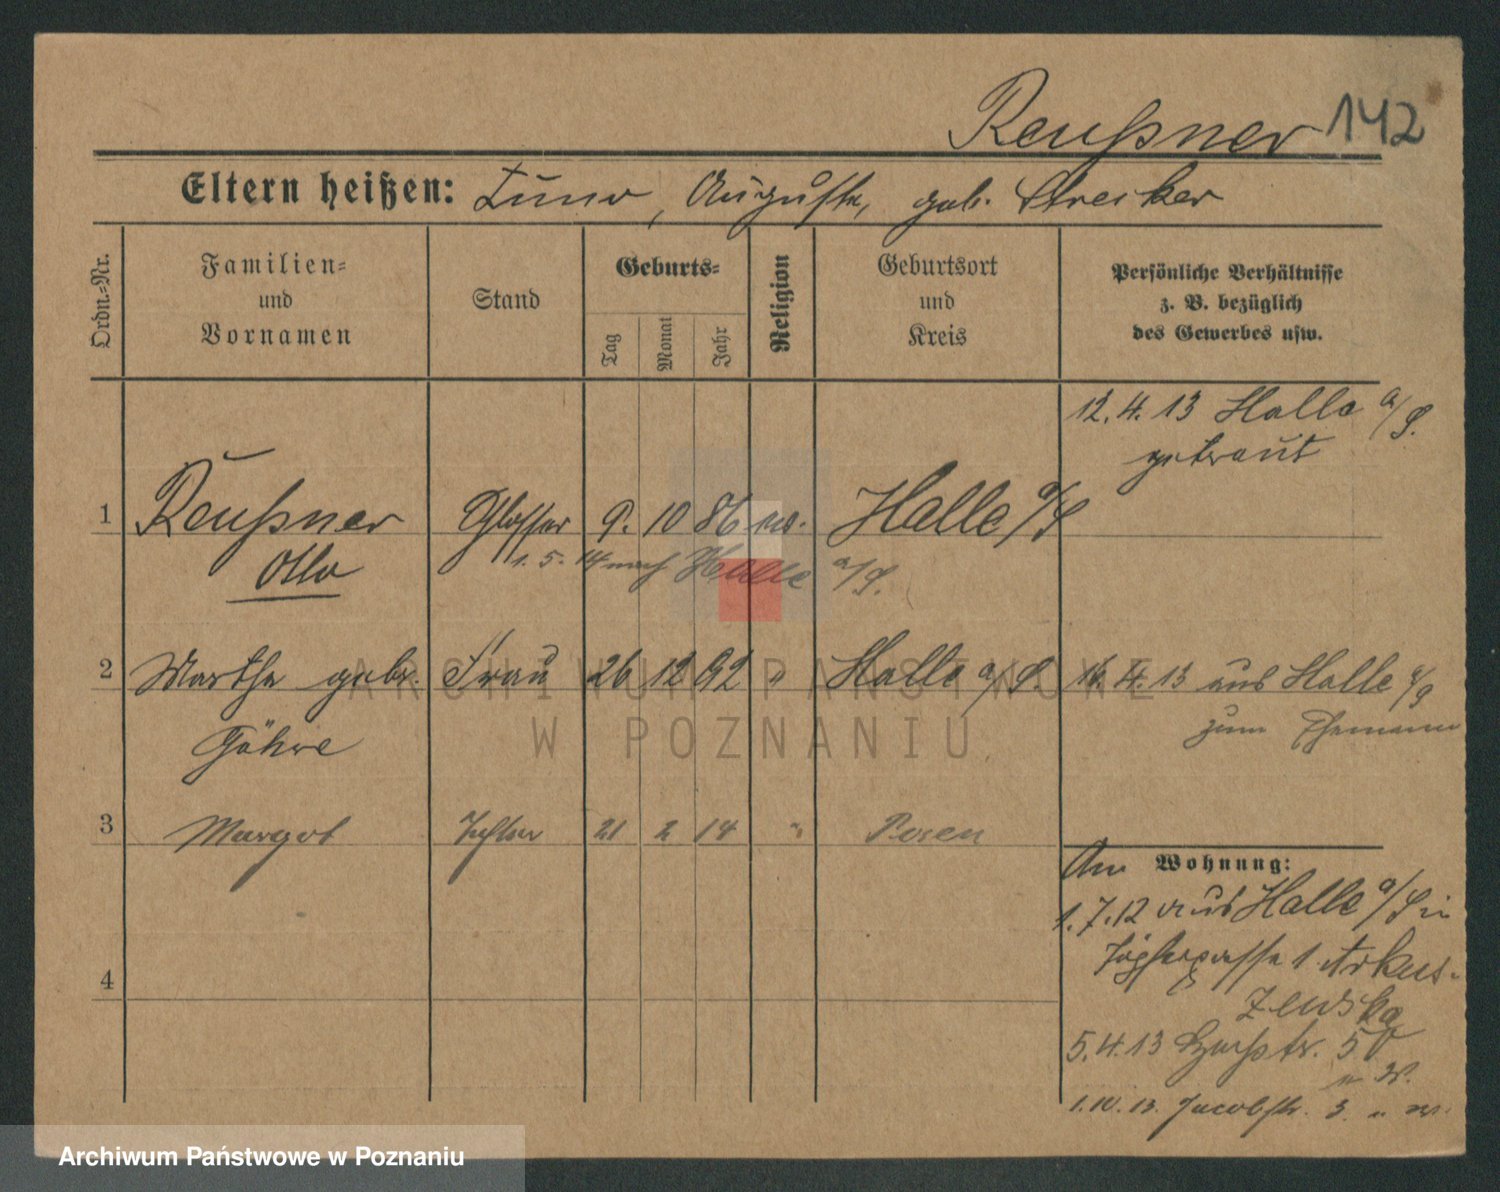 Reußner 142
Eltern heißen: Auguste, geb. Strecker
Ordn.-Nr.
Familien-
und
Vornamen
Stand
Geburts-
Tag
Monat
Jahr
Religion
Geburtsort
und
Kreis
Persönliche Verhältnisse
z. B. bezüglich
des Gewerbes usw.
12. 4. 13 Halle a/S.
getraut
1 Reußner Schlosser 9. 10 86 ev. Halle a/S
Otto
1. 5. 14 nach Halle a/S.
2 Marthe gebr. Frau 26 12 92 " Halle a/S. 16. 4. 13 aus Halle a/S
Göhre zum Ehemann
3 Margot Tochter 21 2 14 " Posen
4
An Wohnung:
1. 7. 12 aus Halle a/S in
1
5. 4. 13 50
1. 10. 13. Jacobstr. 3.
ARCHIWUM PAŃSTWOWE
W POZNANIU
Archiwum Państwowe w Poznaniu